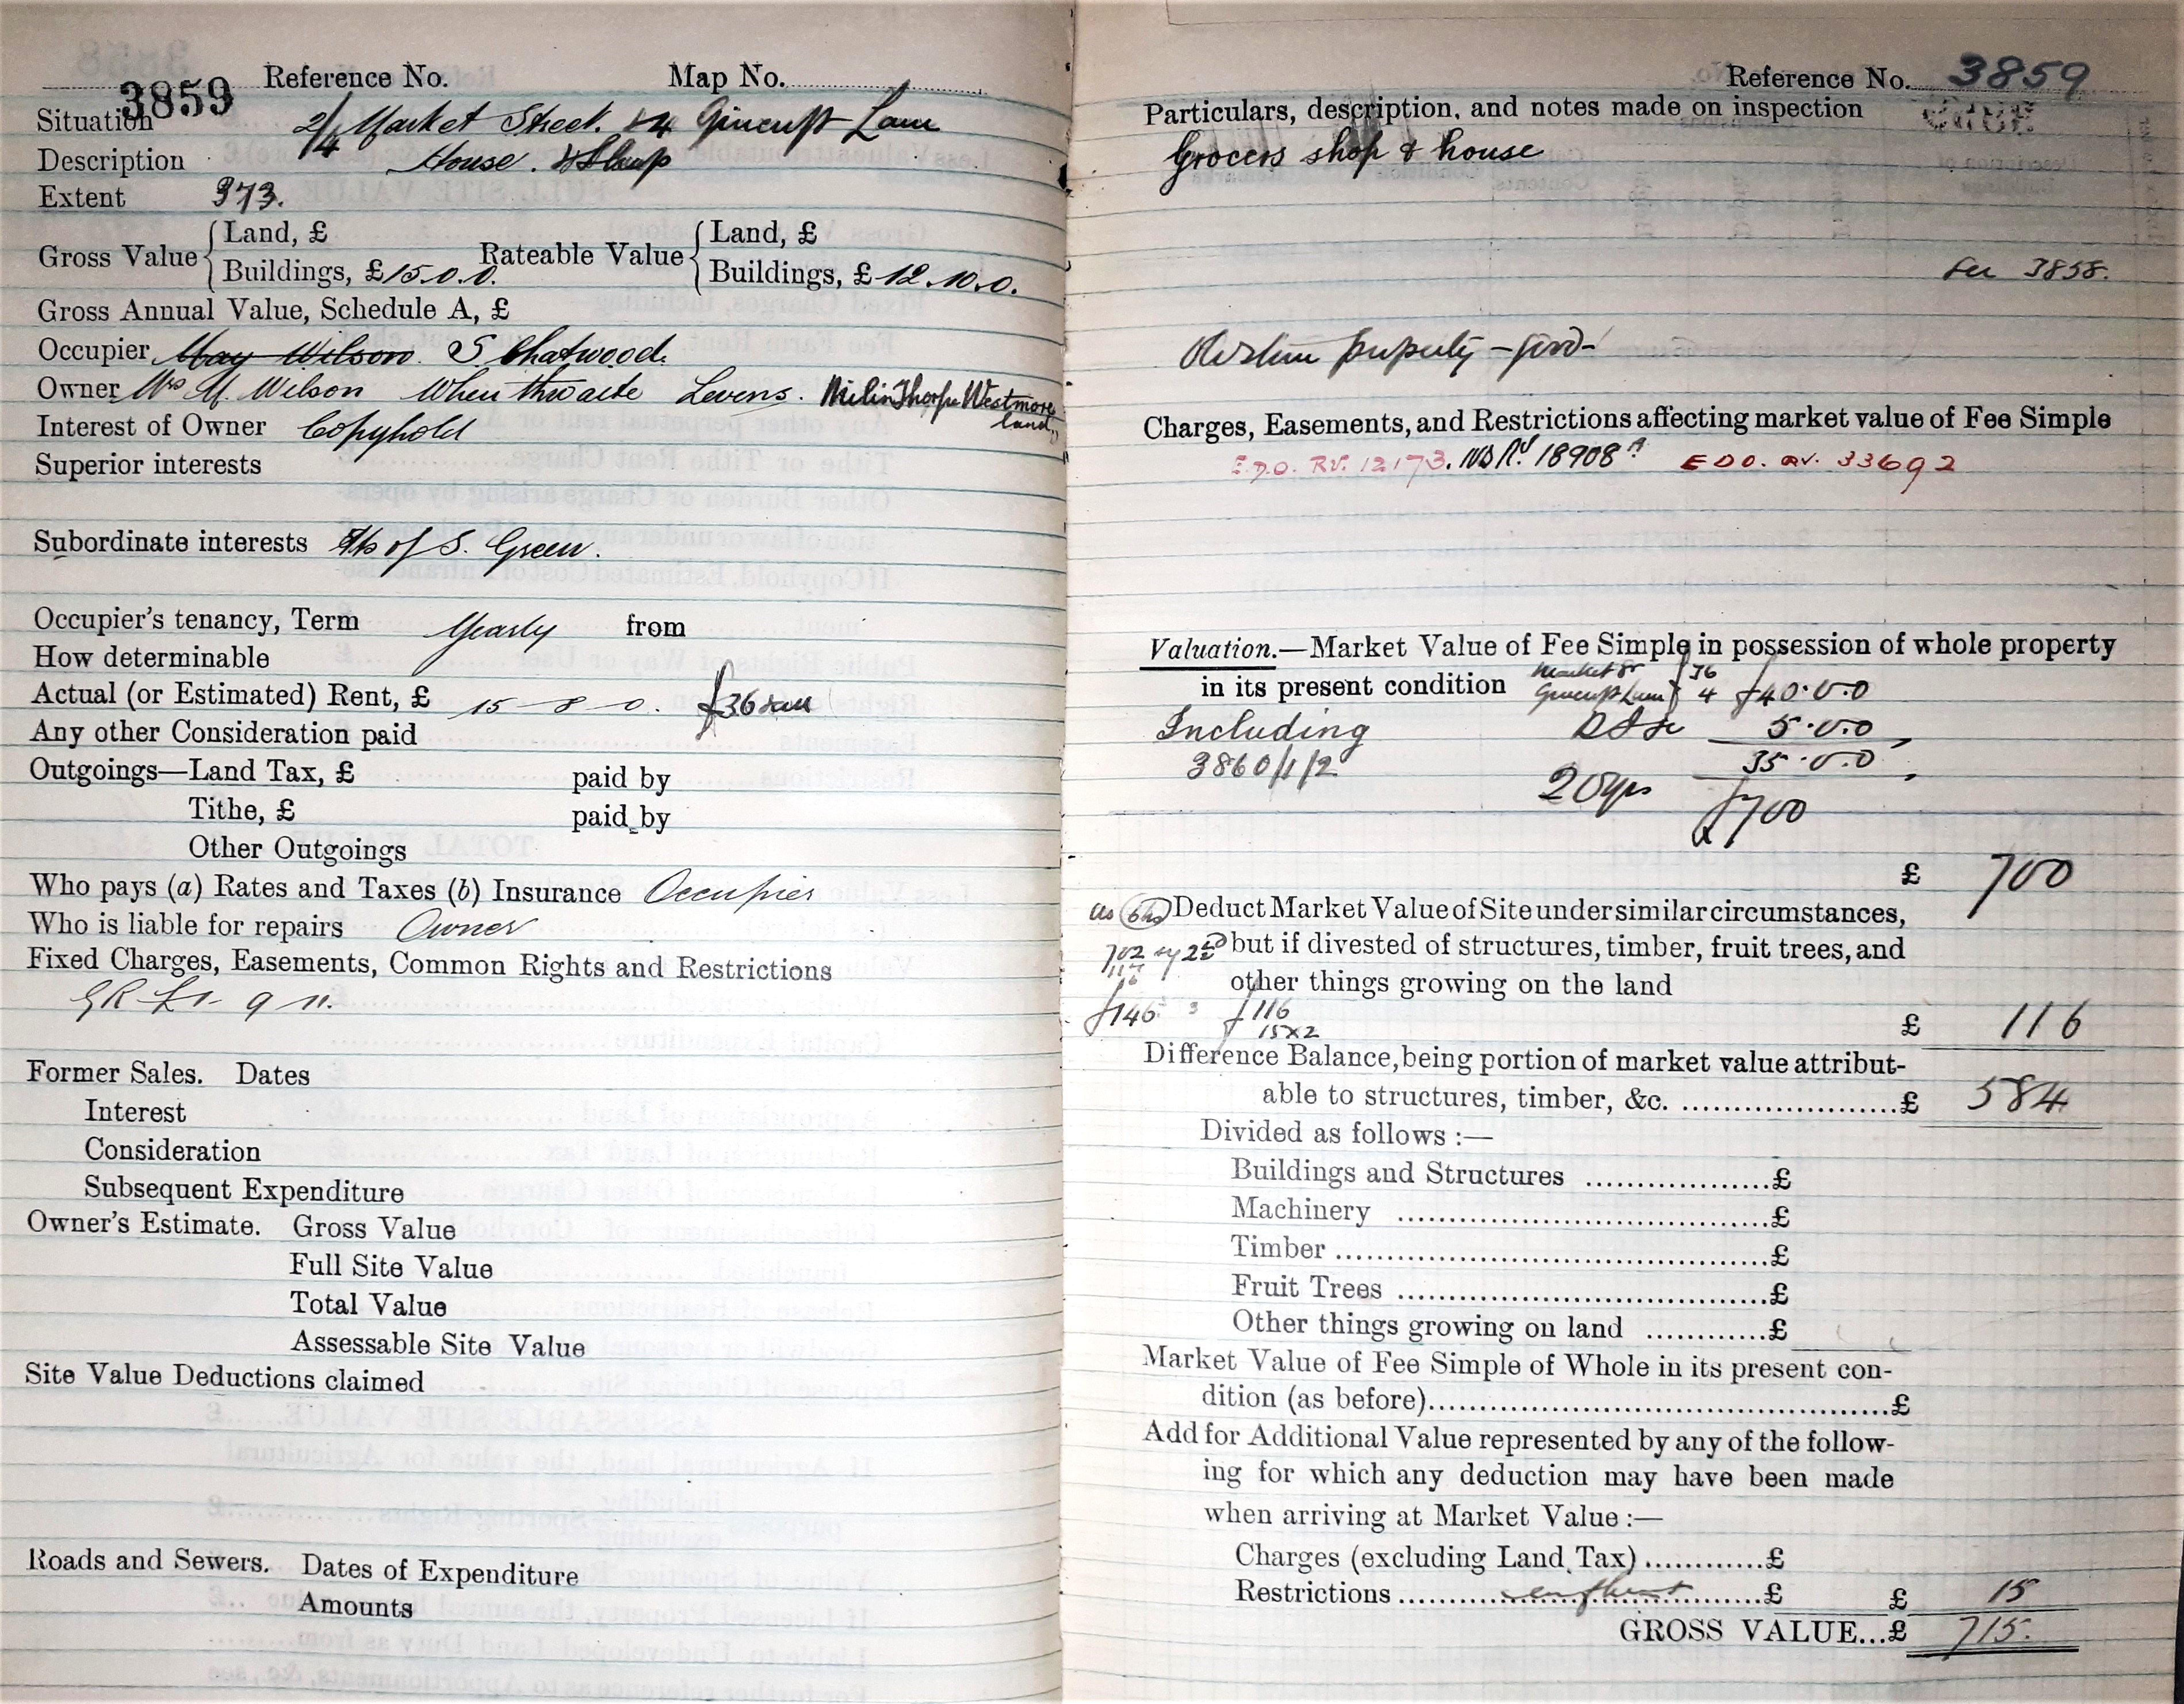 3859 Reference No. Map No.
Situation 2/4 Market Street. & 4 Lane
Description House. & Shop
Extent 373.
Gross Value { Land, £ Rateable Value { Land, £
Buildings, £ 15.0.0. Buildings, £ 12.10.0.
Gross Annual Value, Schedule A, £
Occupier May Wilson. S Chatwood.
Owner Mrs M. Wilson Levens. MilinThorpe Westmore
land,
Interest of Owner Copyhold
Superior interests
Subordinate interests of S. Green.
Occupier's tenancy, Term Yearly from
How determinable
Actual (or Estimated) Rent, £ 15 - 8 - 0. £36
Any other Consideration paid
Outgoings—Land Tax, £ paid by
Tithe, £ paid by
Other Outgoings
Who pays (a) Rates and Taxes (b) Insurance Occupier
Who is liable for repairs Owner
Fixed Charges, Easements, Common Rights and Restrictions
GR £1- 9 11.
Former Sales. Dates
Interest
Consideration
Subsequent Expenditure
Owner's Estimate. Gross Value
Full Site Value
Total Value
Assessable Site Value
Site Value Deductions claimed
Roads and Sewers. Dates of Expenditure
Amounts
Reference No. 3859
Particulars, description, and notes made on inspection
Grocers shop & house
See 3858.
property - good -
Charges, Easements, and Restrictions affecting market value of Fee Simple
E.D.O. RV. 12173. 18908 E D O. RV. 33692
Valuation.—Market Value of Fee Simple in possession of whole property
in its present condition Market St 36
Lane 4 £40.0.0
Including 5.0.0
3860/1/2 35.0.0
20yrs £700
£ 700
Deduct Market Value of Site under similar circumstances,
702 sy but if divested of structures, timber, fruit trees, and
other things growing on the land
£146 £116
15x2
£ 116
Difference Balance, being portion of market value attribut-
able to structures, timber, &c. £ 584
Divided as follows :—
Buildings and Structures £
Machinery £
Timber £
Fruit Trees £
Other things growing on land £
Market Value of Fee Simple of Whole in its present con-
dition (as before) £
Add for Additional Value represented by any of the follow-
ing for which any deduction may have been made
when arriving at Market Value :—
Charges (excluding Land Tax) £
Restrictions £ £ 15
GROSS VALUE...£ 715.